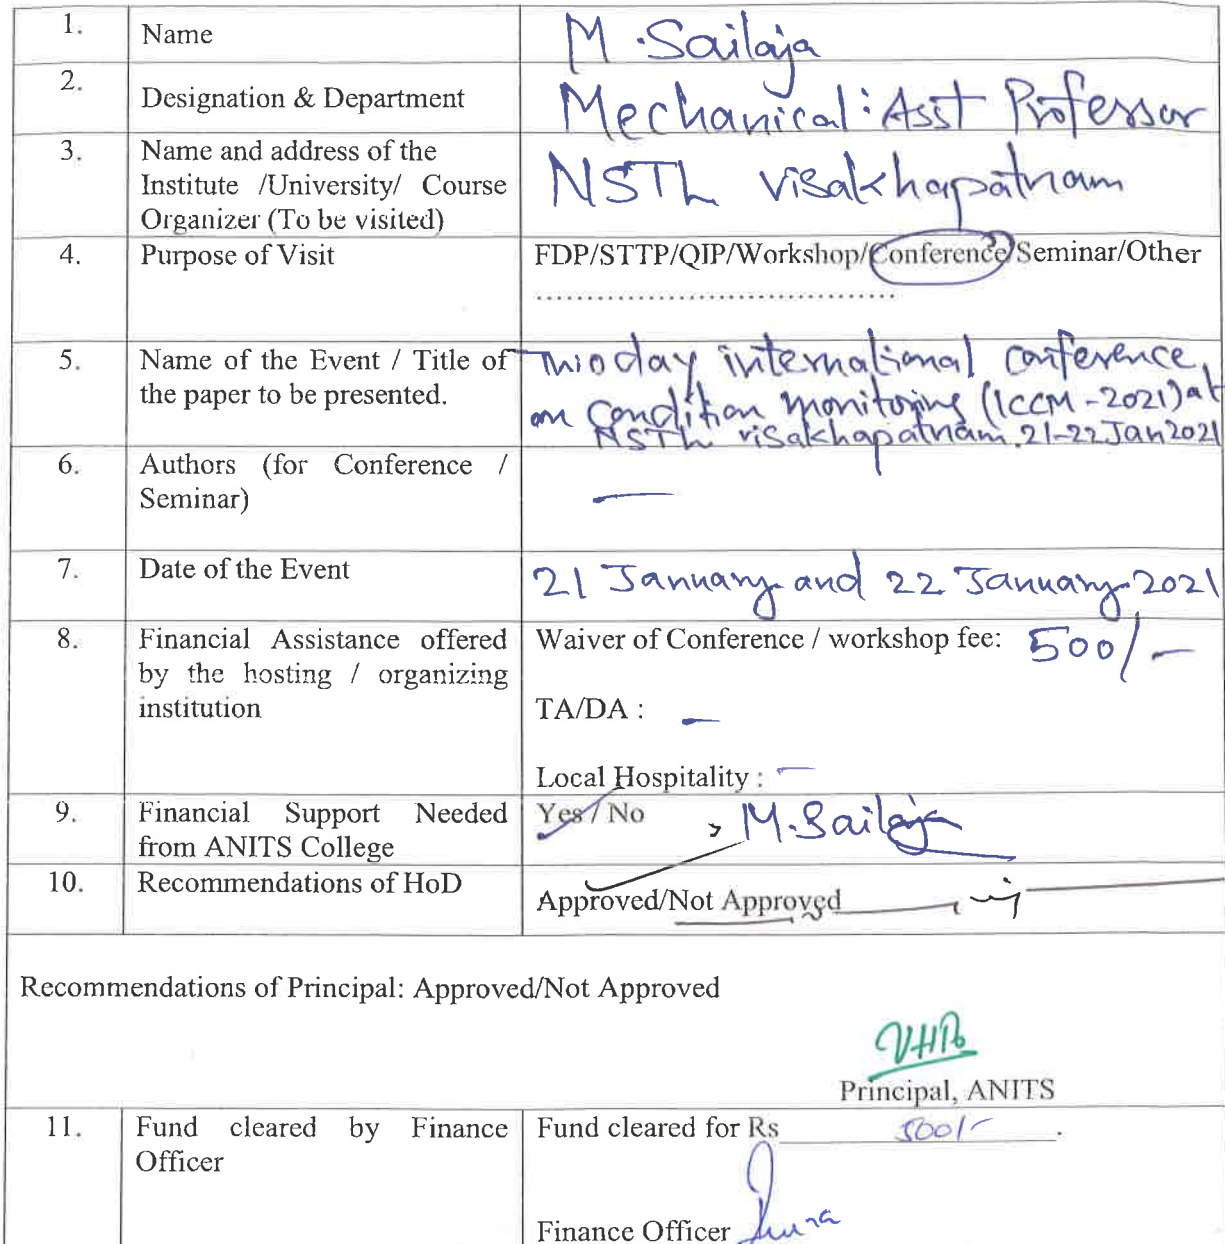 1. Name M. Sailaja
2. Designation & Department Mechanical: Asst Professor
3. Name and address of the Institute /University/ Course Organizer (To be visited) NSTL Visakhapatnam
4. Purpose of Visit FDP/STTP/QIP/Workshop/Conference/Seminar/Other
....................................
5. Name of the Event / Title of Two day international conference
the paper to be presented. on condition monitoring (ICCM-2021) at
NSTL visakhapatnam. 21-22 Jan 2021
6. Authors (for Conference /
Seminar) —
7. Date of the Event 21 January and 22 January 2021
8. Financial Assistance offered Waiver of Conference / workshop fee: 500/-
by the hosting / organizing
institution TA/DA : —
Local Hospitality : —
9. Financial Support Needed Yes / No M. Sailaja
from ANITS College
10. Recommendations of HoD Approved/Not Approved
Recommendations of Principal: Approved/Not Approved
Principal, ANITS
11. Fund cleared by Finance Fund cleared for Rs 500/- .
Officer
Finance Officer